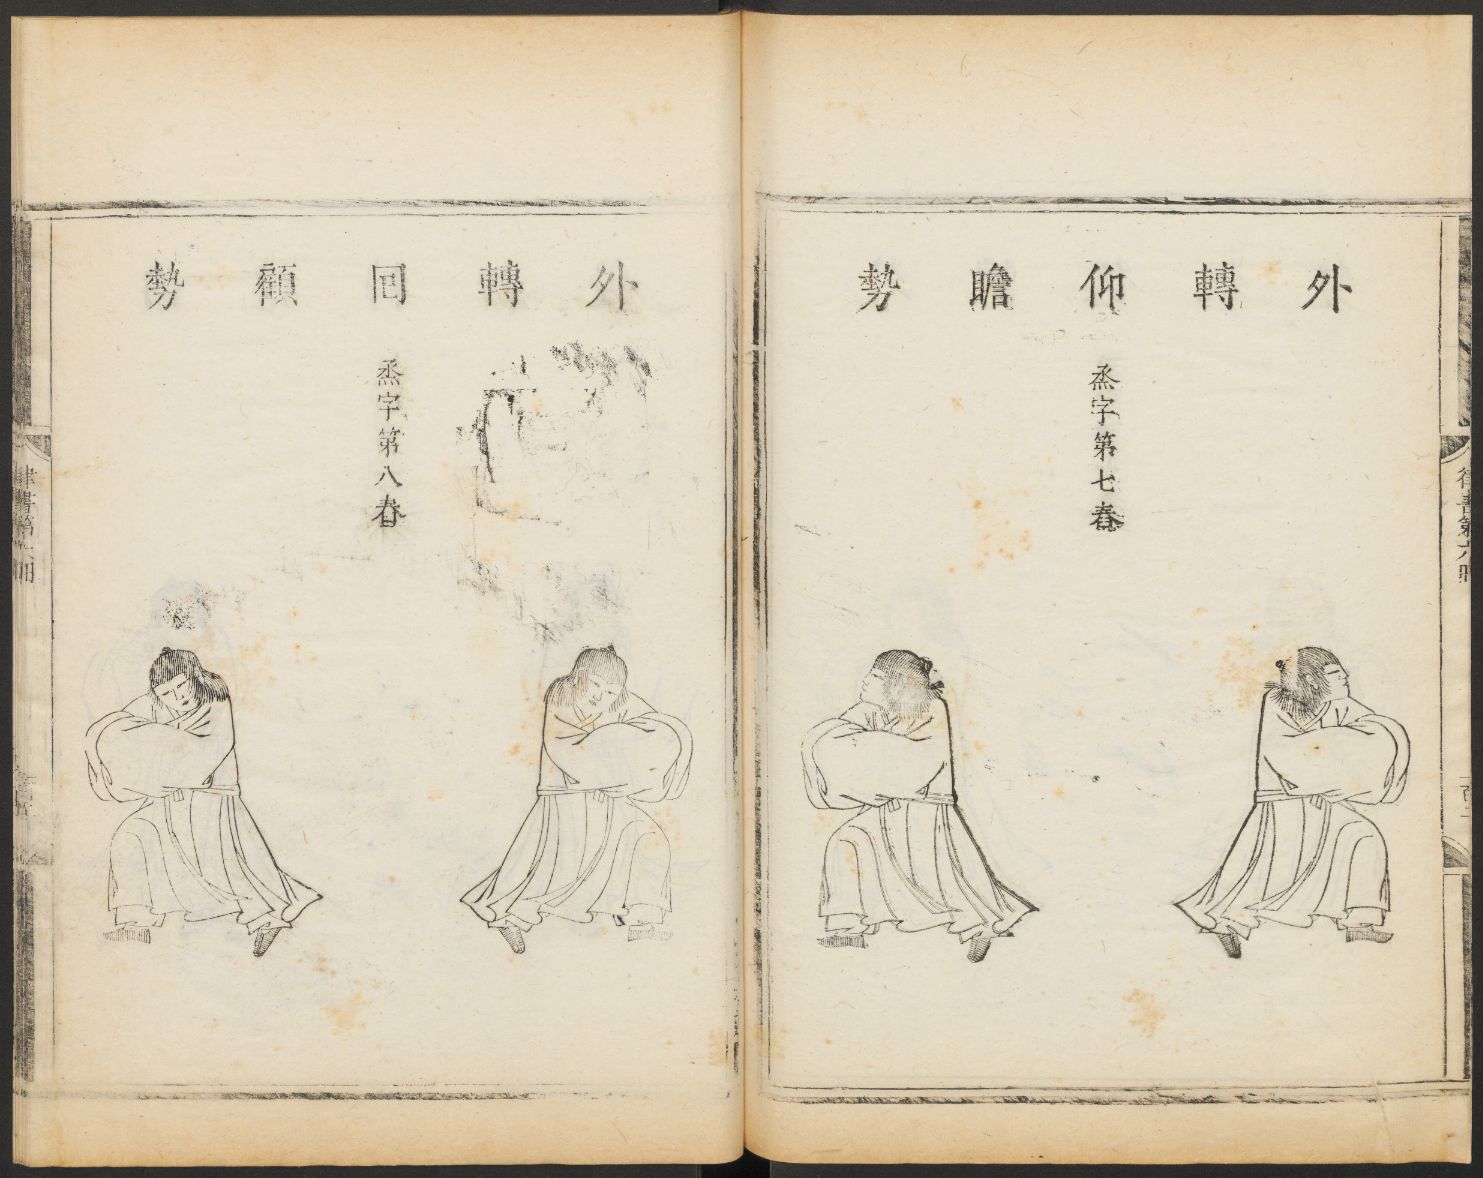 外轉仰瞻勢
烝字第七舂
律書第六冊
外轉囘顧勢
烝字第八舂